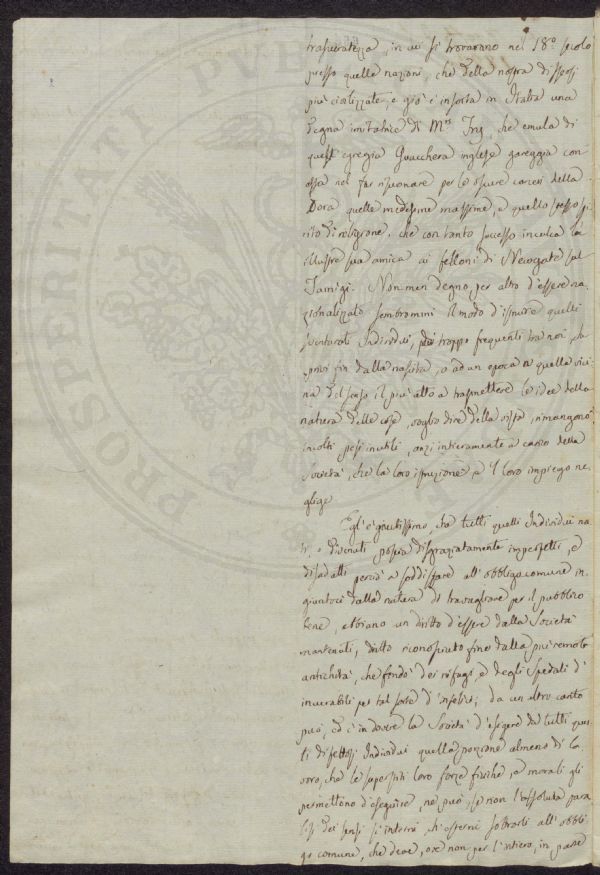 trascuratezza, in cui si trovavano nel 18.º secolo
presso quelle nazioni, che della nostra dissesi
più civilizzate; e già è insorta in Italia una
degna imitatrice di M.rs Fry, che emula di
quest'egregia Quacchera inglese gareggia con
essa nel far risuonare per le oscure carceri della
Dora quelle medesime massime, e quello stesso spi
rito di religione, che con tanto successo inculca la
illustre sua amica ai felloni di Newgate sul
Tamigi. Non men degno per altro d'essere na
zionalizzato sembrommi il modo d'istruire quelli
sventurati Individui, più troppo frequenti tra noi,
privi fin dalla nascita, o ad un'epoca a quella vici
na del senso il più atto a trasmettere le idee della
natura delle cose, voglio dire della vista, rimangono
inutili, anzi intieramente a carico della
Società, che la loro istruzione, e 'l loro impiego ne
glige.
Egl'è giustissimo, che tutti quelli Individui na
ti, o divenuti poscia disgraziatamente imperfetti, e
disadatti perciò a soddisfare all'obbligo comune in
giuntoci dalla natura di travagliare per il pubblico
bene, abbiano un diritto d'essere dalla Società
mantenuti, diritto riconosciuto fino dalla più remota
antichità, che fondò dei rifugi, e degli Spedali d'
incurabili per tal sorte d'infelici; da un altro canto
può, ed è in dovere la Società d'esigere da tutti ques
ti difettosi Individui quella porzione almeno di la
voro, che le superstiti loro forze fisiche, e morali gli
permettono d'eseguire, nè può, se non l'assoluta para
lisi dei sensi sì interni, ch'esterni sottrarli all'obbli
go comune, che deve, ove non per l'intiero, in parte